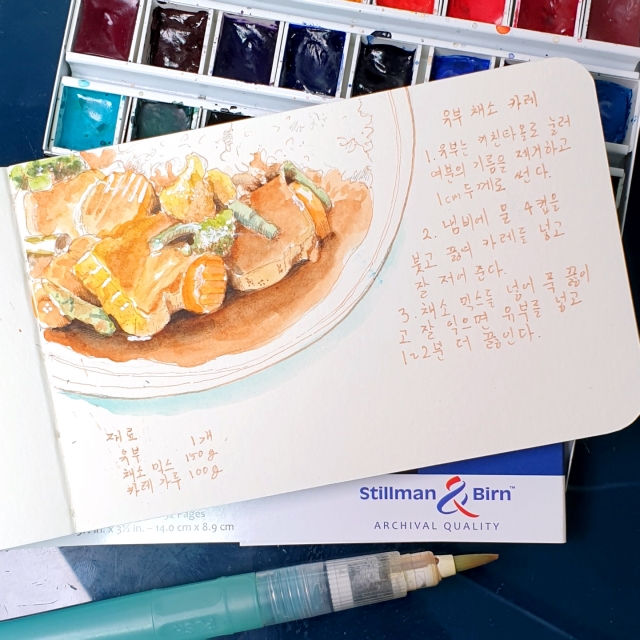 유부 채소 카레
1. 유부는 키친타올로 눌러
여분의 기름을 제거하고
1cm 두께로 썬다.
2. 냄비에 물 4컵을
붓고 끓여 카레를 넣고
잘 저어 준다.
3. 채소 믹스를 넣어 푹 끓이
고 잘 익으면 유부를 넣고
1~2분 더 끓인다.
재료
유부 1개
채소 믹스 150g
카레 가루 100g
Stillman & Birn™
ARCHIVAL QUALITY
Pages
in. x 3½ in. – 14.0 cm x 8.9 cm